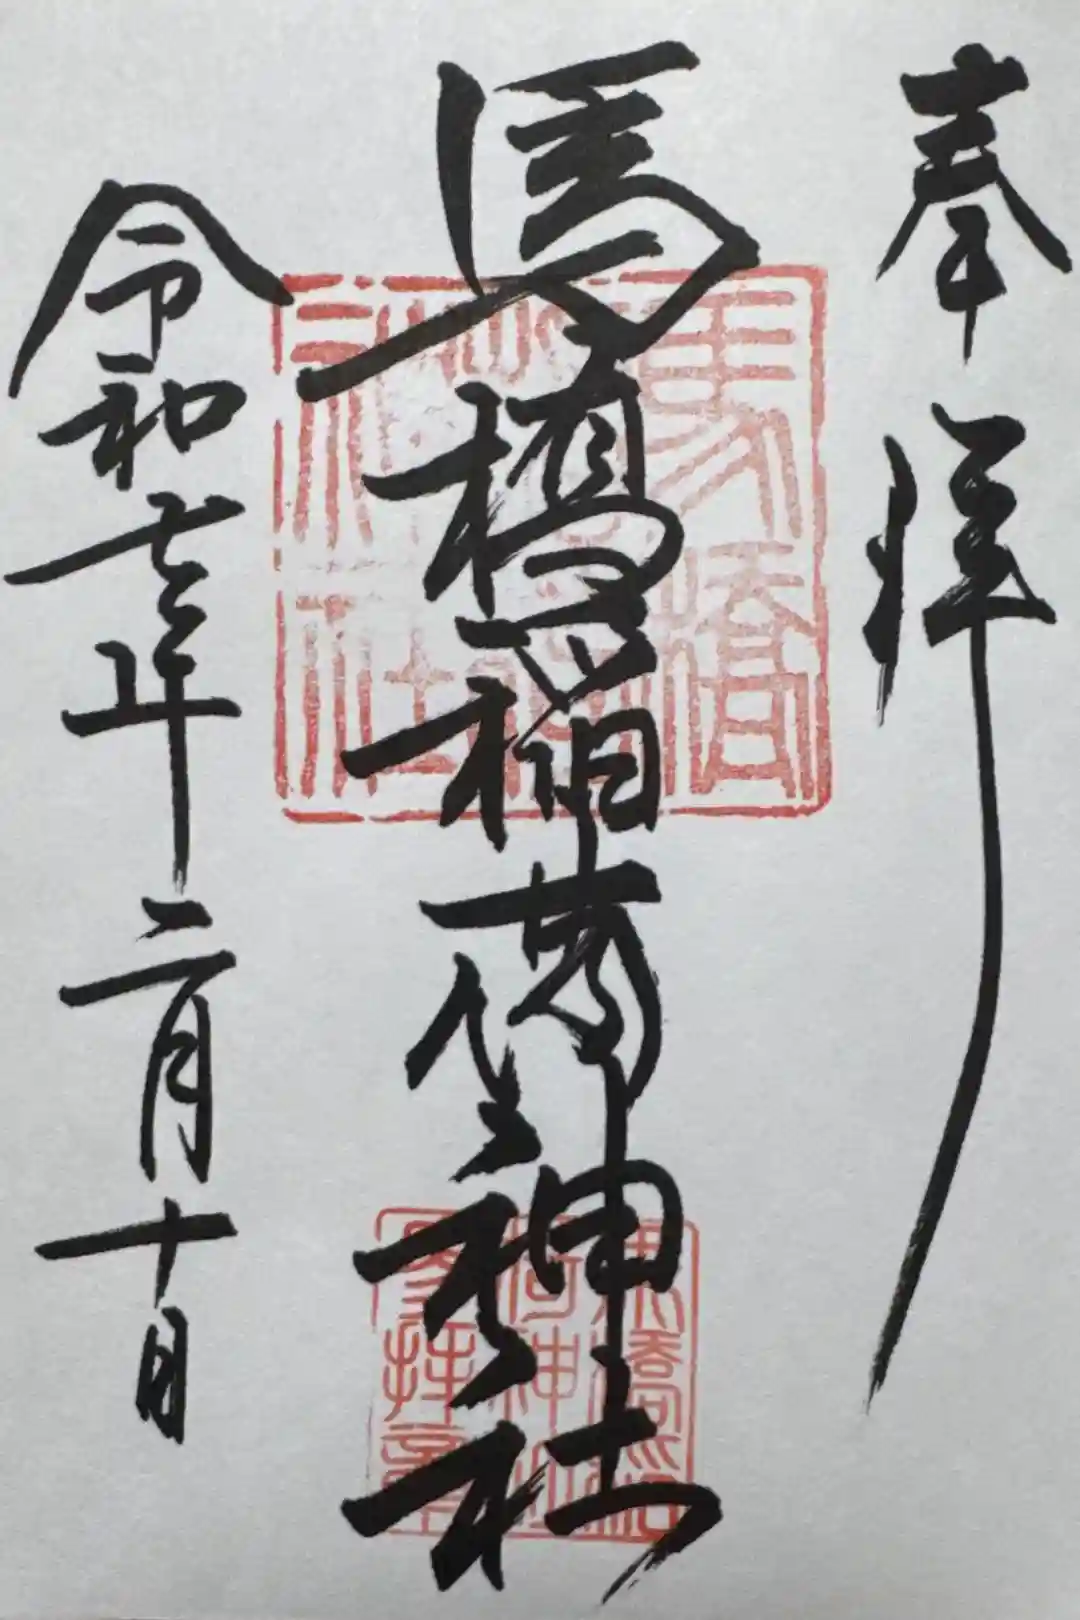 奉拝
馬橋稲荷神社
令和七年二月十日
馬橋
稲荷
神社
馬橋稲
荷神社
参拝章